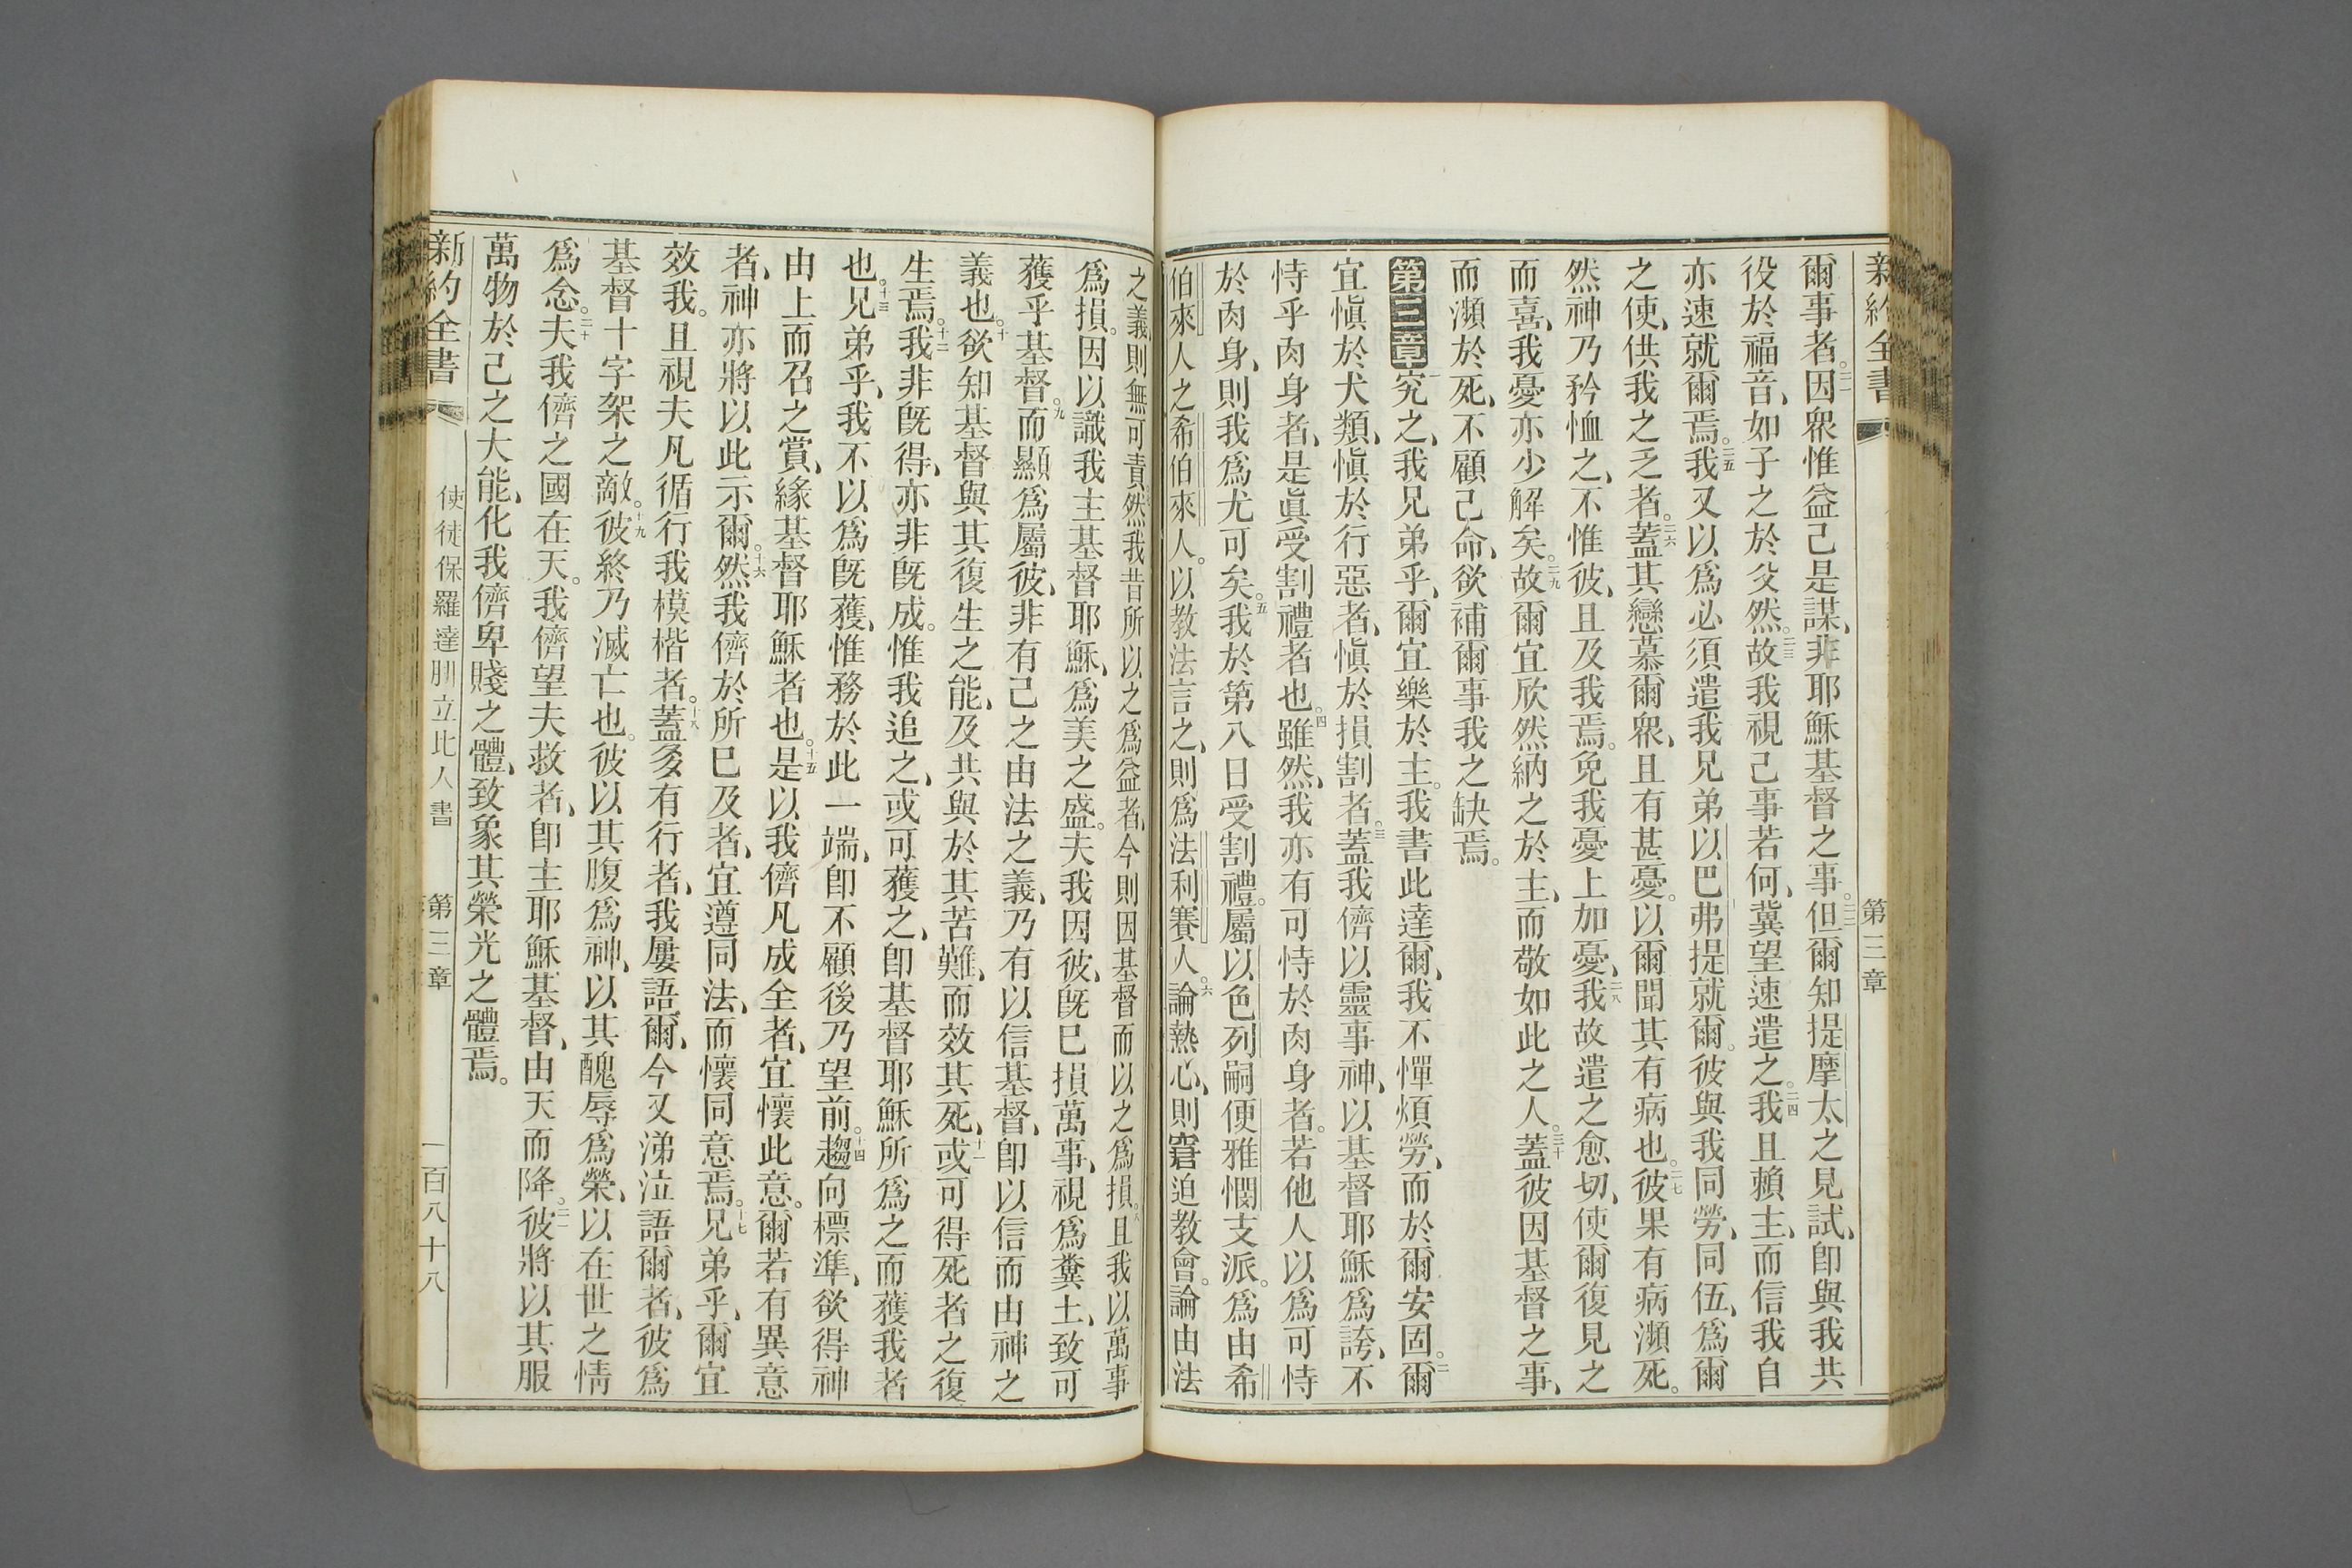 新約全書
第三章
爾事者。二一因衆惟益己是謀、非耶穌基督之事。二二但爾知提摩太之見試、卽與我共
役於福音、如子之於父然。二三故我視己事若何、冀望速遣之。二四我且賴主、而信我自
亦速就爾焉。二五我又以爲必須遣我兄弟以巴弗提就爾。彼與我同勞、同伍、爲爾
之使、供我之乏者。二六蓋其戀慕爾衆、且有甚憂。以爾聞其有病也。二七彼果有病瀕死。
然神乃矜恤之、不惟彼、且及我焉。免我憂上加憂、二八我故遣之愈切、使爾復見之
而喜、我憂亦少解矣。二九故爾宜欣然納之於主、而敬如此之人。三十蓋彼因基督之事、
而瀕於死、不顧己命、欲補爾事我之缺焉。
第三章一究之、我兄弟乎、爾宜樂於主。我書此達爾、我不憚煩勞、而於爾安固。二爾
宜愼於犬類、愼於行惡者、愼於損割者。三蓋我儕以靈事神、以基督耶穌爲誇、不
恃乎肉身者、是眞受割禮者也。四雖然、我亦有可恃於肉身者。若他人以爲可恃
於肉身、則我爲尤可矣。五我於第八日受割禮。屬以色列嗣便雅憫支派。爲由希
伯來人之希伯來人。以教法言之、則爲法利賽人。六論熱心、則窘迫教會。論由法
之義則無可責然我昔所以之爲益者、今則因基督而以之爲損。八且我以萬事
爲損。因以識我主基督耶穌、爲美之盛。夫我因彼、旣已損萬事、視爲糞土、致可
獲乎基督。九而顯爲屬彼、非有己之由法之義、乃有以信基督、卽以信而由神之
義也。十欲知基督與其復生之能、及共與於其苦難、而效其死、十一或可得死者之復
生焉。十二我非旣得、亦非旣成。惟我追之、或可獲之、卽基督耶穌所爲之而獲我者
也。十三兄弟乎、我不以爲旣獲、惟務於此一端、卽不顧後乃望前。十四趨向標準、欲得神
由上而召之賞、緣基督耶穌者也。十五是以我儕凡成全者、宜懷此意。爾若有異意
者、神亦將以此示爾。十六然我儕於所已及者、宜遵同法、而懷同意焉。十七兄弟乎、爾宜
效我。且視夫凡循行我模楷者。十八蓋多有行者、我屢語爾、今又涕泣語爾者、彼爲
基督十字架之敵。十九彼終乃滅亡也。彼以其腹爲神、以其醜辱爲榮、以在世之情
爲念。二十夫我儕之國在天。我儕望夫救者、卽主耶穌基督、由天而降。二一彼將以其服
萬物於己之大能、化我儕卑賤之體、致象其榮光之體焉。
新約全書
使徒保羅達腓立比人書
第三章
一百八十八